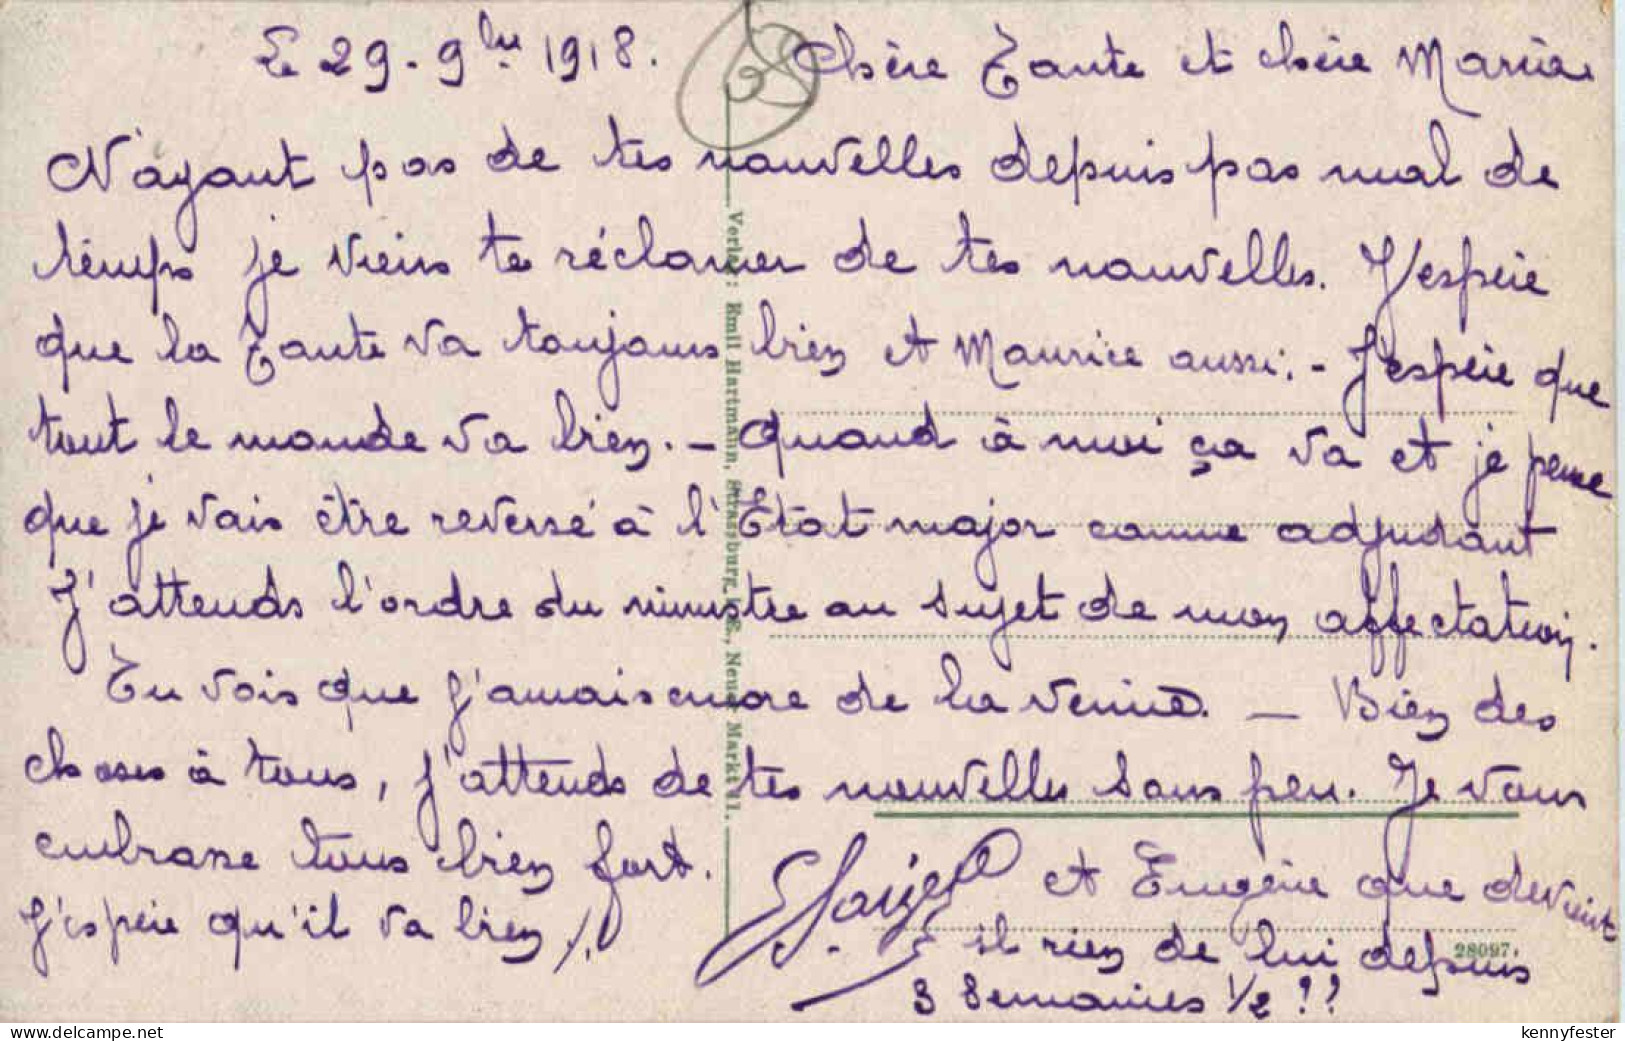 Le 29-9bre 1918. Chère Tante et chère Marie
N'ayant pas de tes nouvelles depuis pas mal de
temps je viens te réclamer de tes nouvelles. J'espère
que la Tante va toujours bien et Maurice aussi. - J'espère que
tout le monde va bien. - Quand à moi ça va et je pense
que je vais être reversé à l'Etat major comme adjudant
J'attends l'ordre du ministre au sujet de mon affectation.
Tu vois que j'amais encore de la veine. - Bien des
choses à tous, j'attends de tes nouvelles sous peu. Je vous
embrasse tous bien fort.
et Eugène que devient
J'espère qu'il va bien
il rien de lui depuis
3 Semaines 1/2 ??
Verlag: Emil Hartmann, Strassburg i. E., Neuer Markt 11.
28097.
delcampe.net
kennyfester